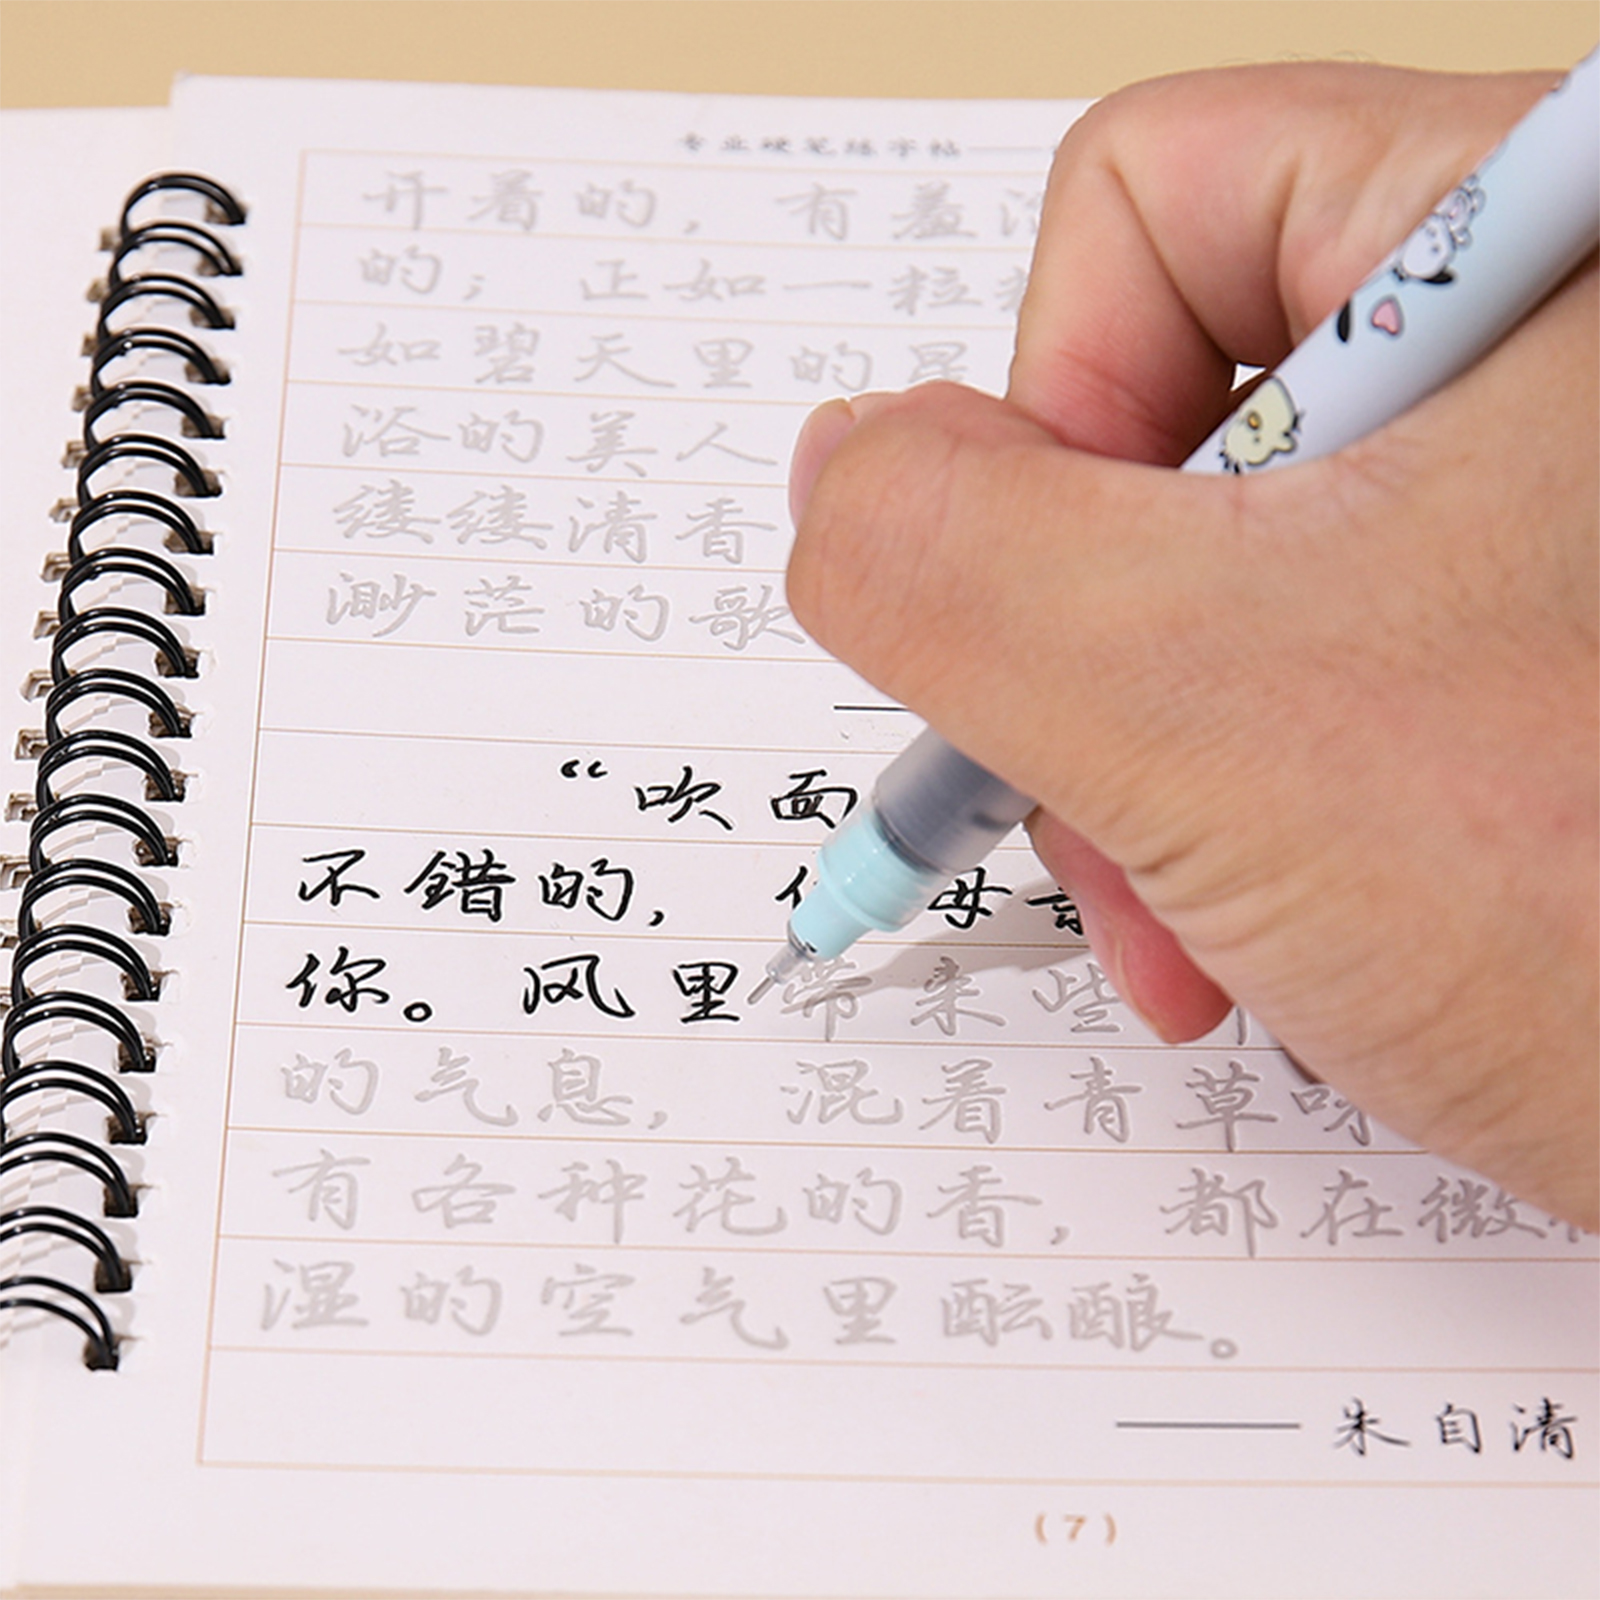 专业硬笔练字帖——
开着的，有羞涩
的；正如一粒
如碧天里的星
浴的美人
缕缕清香
渺茫的歌
——
“吹面
不错的， 母亲
你。风里带来些
的气息，混着青草味
有各种花的香，都在微
湿的空气里酝酿。
——朱自清
(7)